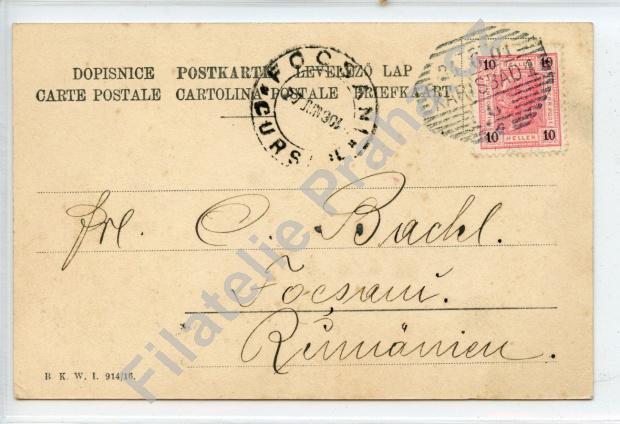 DOPISNICE POSTKARTE LEVELEZŐ LAP
CARTE POSTALE CARTOLINA POSTALE BRIEFKAART
FOCȘANI
CURSA
KARLSBAD 1
10 10
HELLER
10 10
Frl. C. Bachl.
Focsani.
Rumänien.
B. K. W. I. 914/16.
Filatelie Praha.cz